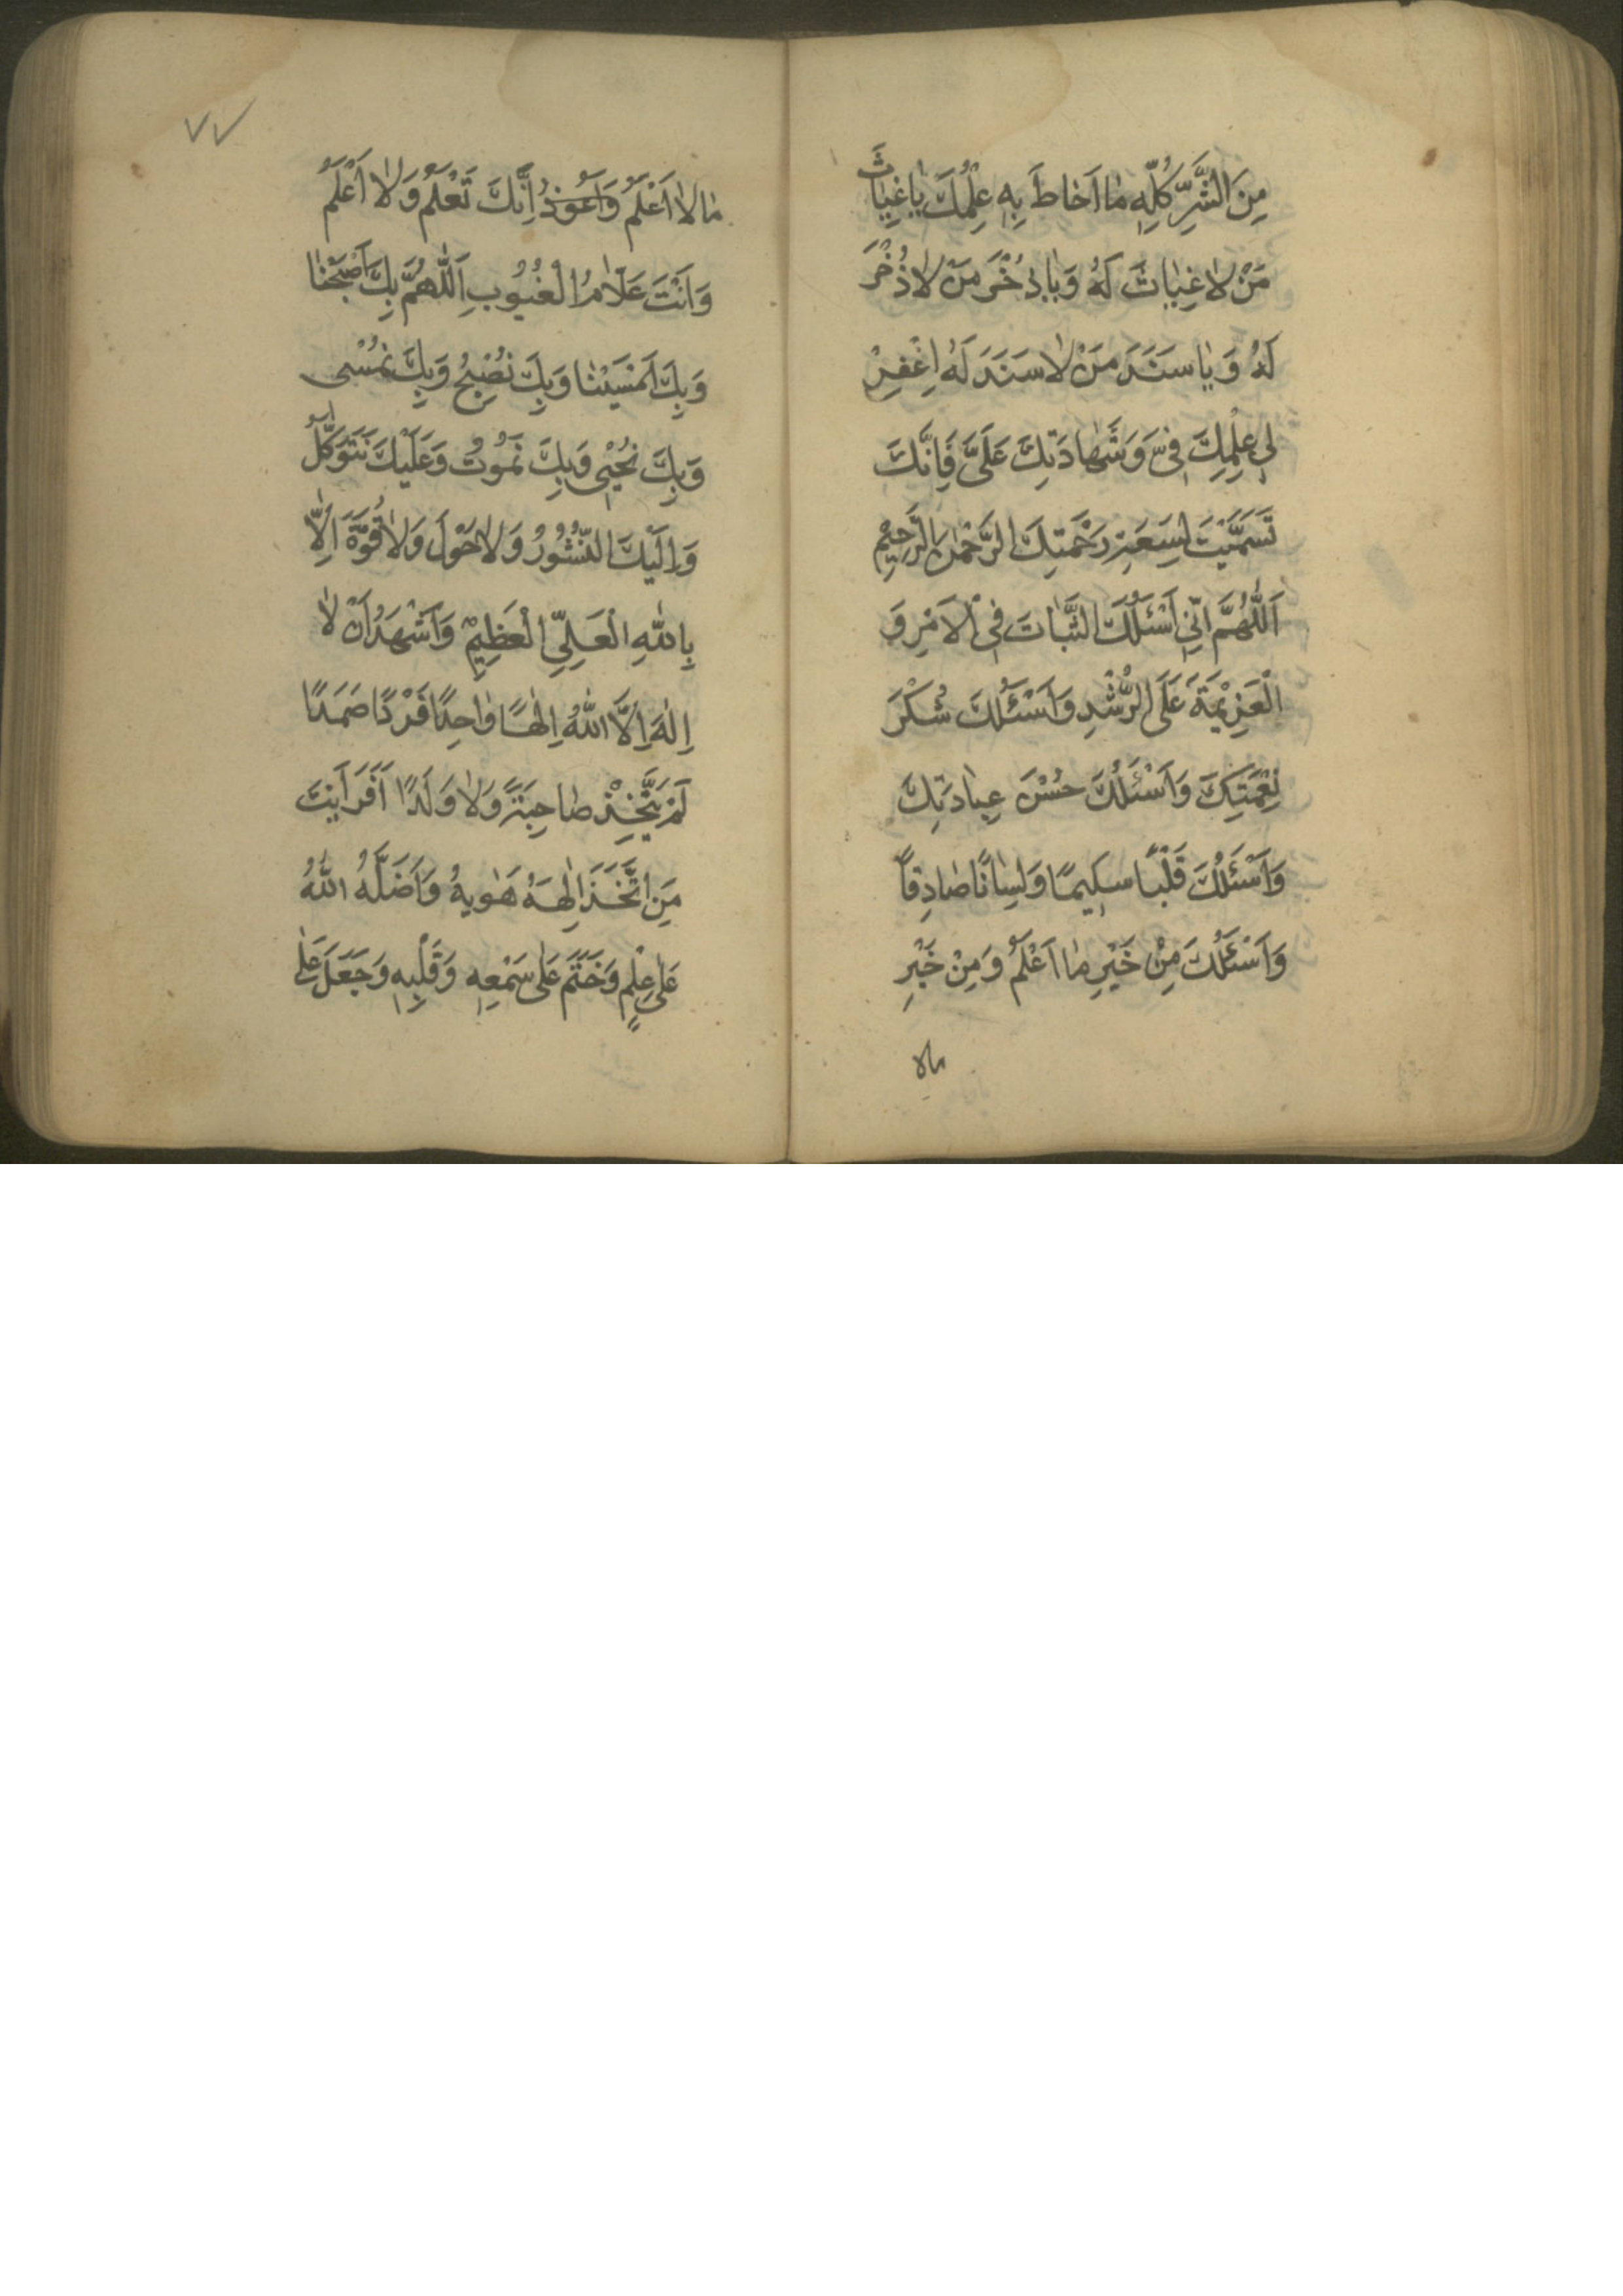 مِنَ الشَّرِّ كُلِّهِ مٰا اَحٰاطَ بِهِ عِلْمُكَ يٰا غِيٰاثَ
مَنْ لاٰ غِيٰاثَ لَهُ وَ يٰا ذُخْرَ مَنْ لاٰ ذُخْرَ
لَهُ وَ يٰا سَنَدَ مَنْ لاٰ سَنَدَ لَهُ اِغْفِرْ
لِي عِلْمِكَ فِيَّ وَ شَهٰادَتِكَ عَلَيَّ فَاِنَّكَ
تَسَمَّيْتَ لِسَعَةِ رَحْمَتِكَ الرَّحْمٰنِ الرَّحِيْمِ
اَللّٰهُمَّ اِنِّي اَسْئَلُكَ الثَّبٰاتَ فِي الْاَمْرِ وَ
الْعَزِيْمَةَ عَلَى الرُّشْدِ وَ اَسْئَلُكَ شُكْرَ
نِعْمَتِكَ وَ اَسْئَلُكَ حُسْنَ عِبٰادَتِكَ
وَ اَسْئَلُكَ قَلْبًا سَلِيمًا وَ لِسٰانًا صٰادِقاً
وَ اَسْئَلُكَ مِنْ خَيْرِ مٰا اَعْلَمُ وَ مِنْ خَيْرِ
مالا
٧٧
مٰا لاٰ اَعْلَمُ وَ اَعُوْذُ اِنَّكَ تَعْلَمُ وَ لاٰ اَعْلَمُ
وَ اَنْتَ عَلاّٰمُ الْغُيُوْبِ اَللّٰهُمَّ بِكَ اَصْبَحْنٰا
وَ بِكَ اَمْسَيْنٰا وَ بِكَ نُصْبِحُ وَ بِكَ نُمْسٰى
وَ بِكَ نُحْيٰى وَ بِكَ نَمُوْتُ وَ عَلَيْكَ نَتَوَكَّلُ
وَ اِلَيْكَ النُّشُوْرُ وَ لاٰ حَوْلَ وَ لاٰ قُوَّةَ اِلاّٰ
بِاللّٰهِ الْعَلِيِّ الْعَظِيْمِ وَ اَشْهَدُ اَنْ لاٰ
اِلٰهَ اِلاَّ اللّٰهُ اِلٰهًا وٰاحِدًا فَرْدًا صَمَدًا
لَمْ يَتَّخِذْ صٰاحِبَةً وَ لاٰ وَلَدًا اَفَرَاَيْتَ
مَنِ اتَّخَذَ اِلٰهَهُ هَوٰيهُ وَ اَضَلَّهُ اللّٰهُ
عَلٰى عِلْمٍ وَ خَتَمَ عَلٰى سَمْعِهِ وَ قَلْبِهِ وَ جَعَلَ عَلٰى